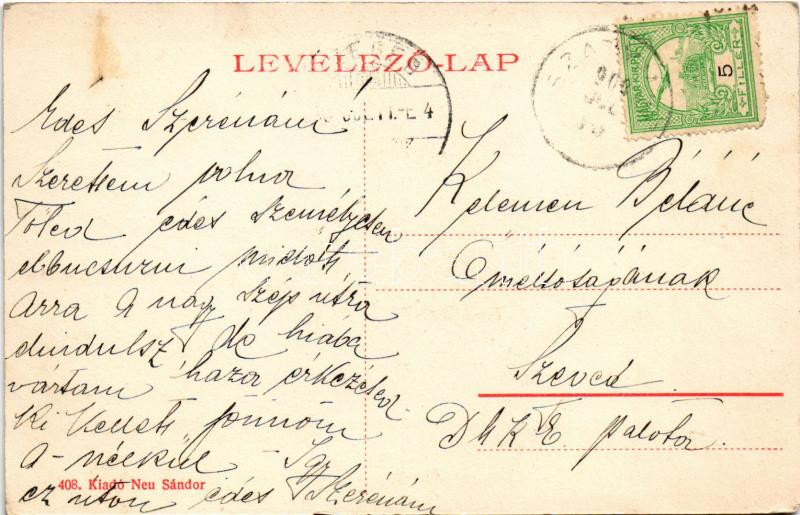 LEVELEZŐ-LAP
Édes Szerénám
Szerettem volna
Tőled édes személyesen
elbucsuzni midőtt
Arra A nagy szép útra
elindulsz De hiába
vártam haza érkezésed
Ki kellett jönnöm
A-nélkül Igy
ez úton édes Szerénám
408. Kiadó Neu Sándor
Kelemen Béláné
Őméltóságának
Szeged
DMKE palota
MAGYAR KIR. POSTA
5
FILLÉR